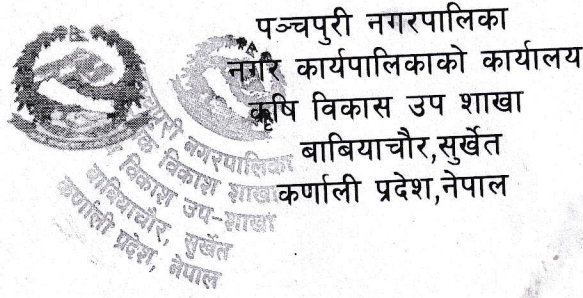 पञ्चपुरी नगरपालिका
नगर कार्यपालिकाको कार्यालय
कृषि विकास उप शाखा
बाबियाचौर,सुर्खेत
कर्णाली प्रदेश,नेपाल
नगरपालिका
विकास शाखा
विकास उप-शाखा
बाबियाचौर, सुर्खेत
कर्णाली प्रदेश, नेपाल